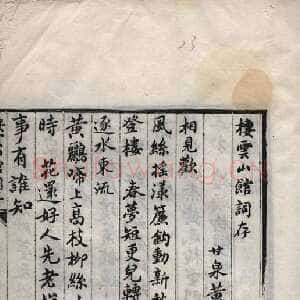 23
棲雲山館詞存
甘泉黃
相見歡
風絲搖漾簾鉤動新
登樓 春夢短更兒轉
逐水東流
黃鸝啼上高枝柳絲
時 花還好人先老
事有誰知